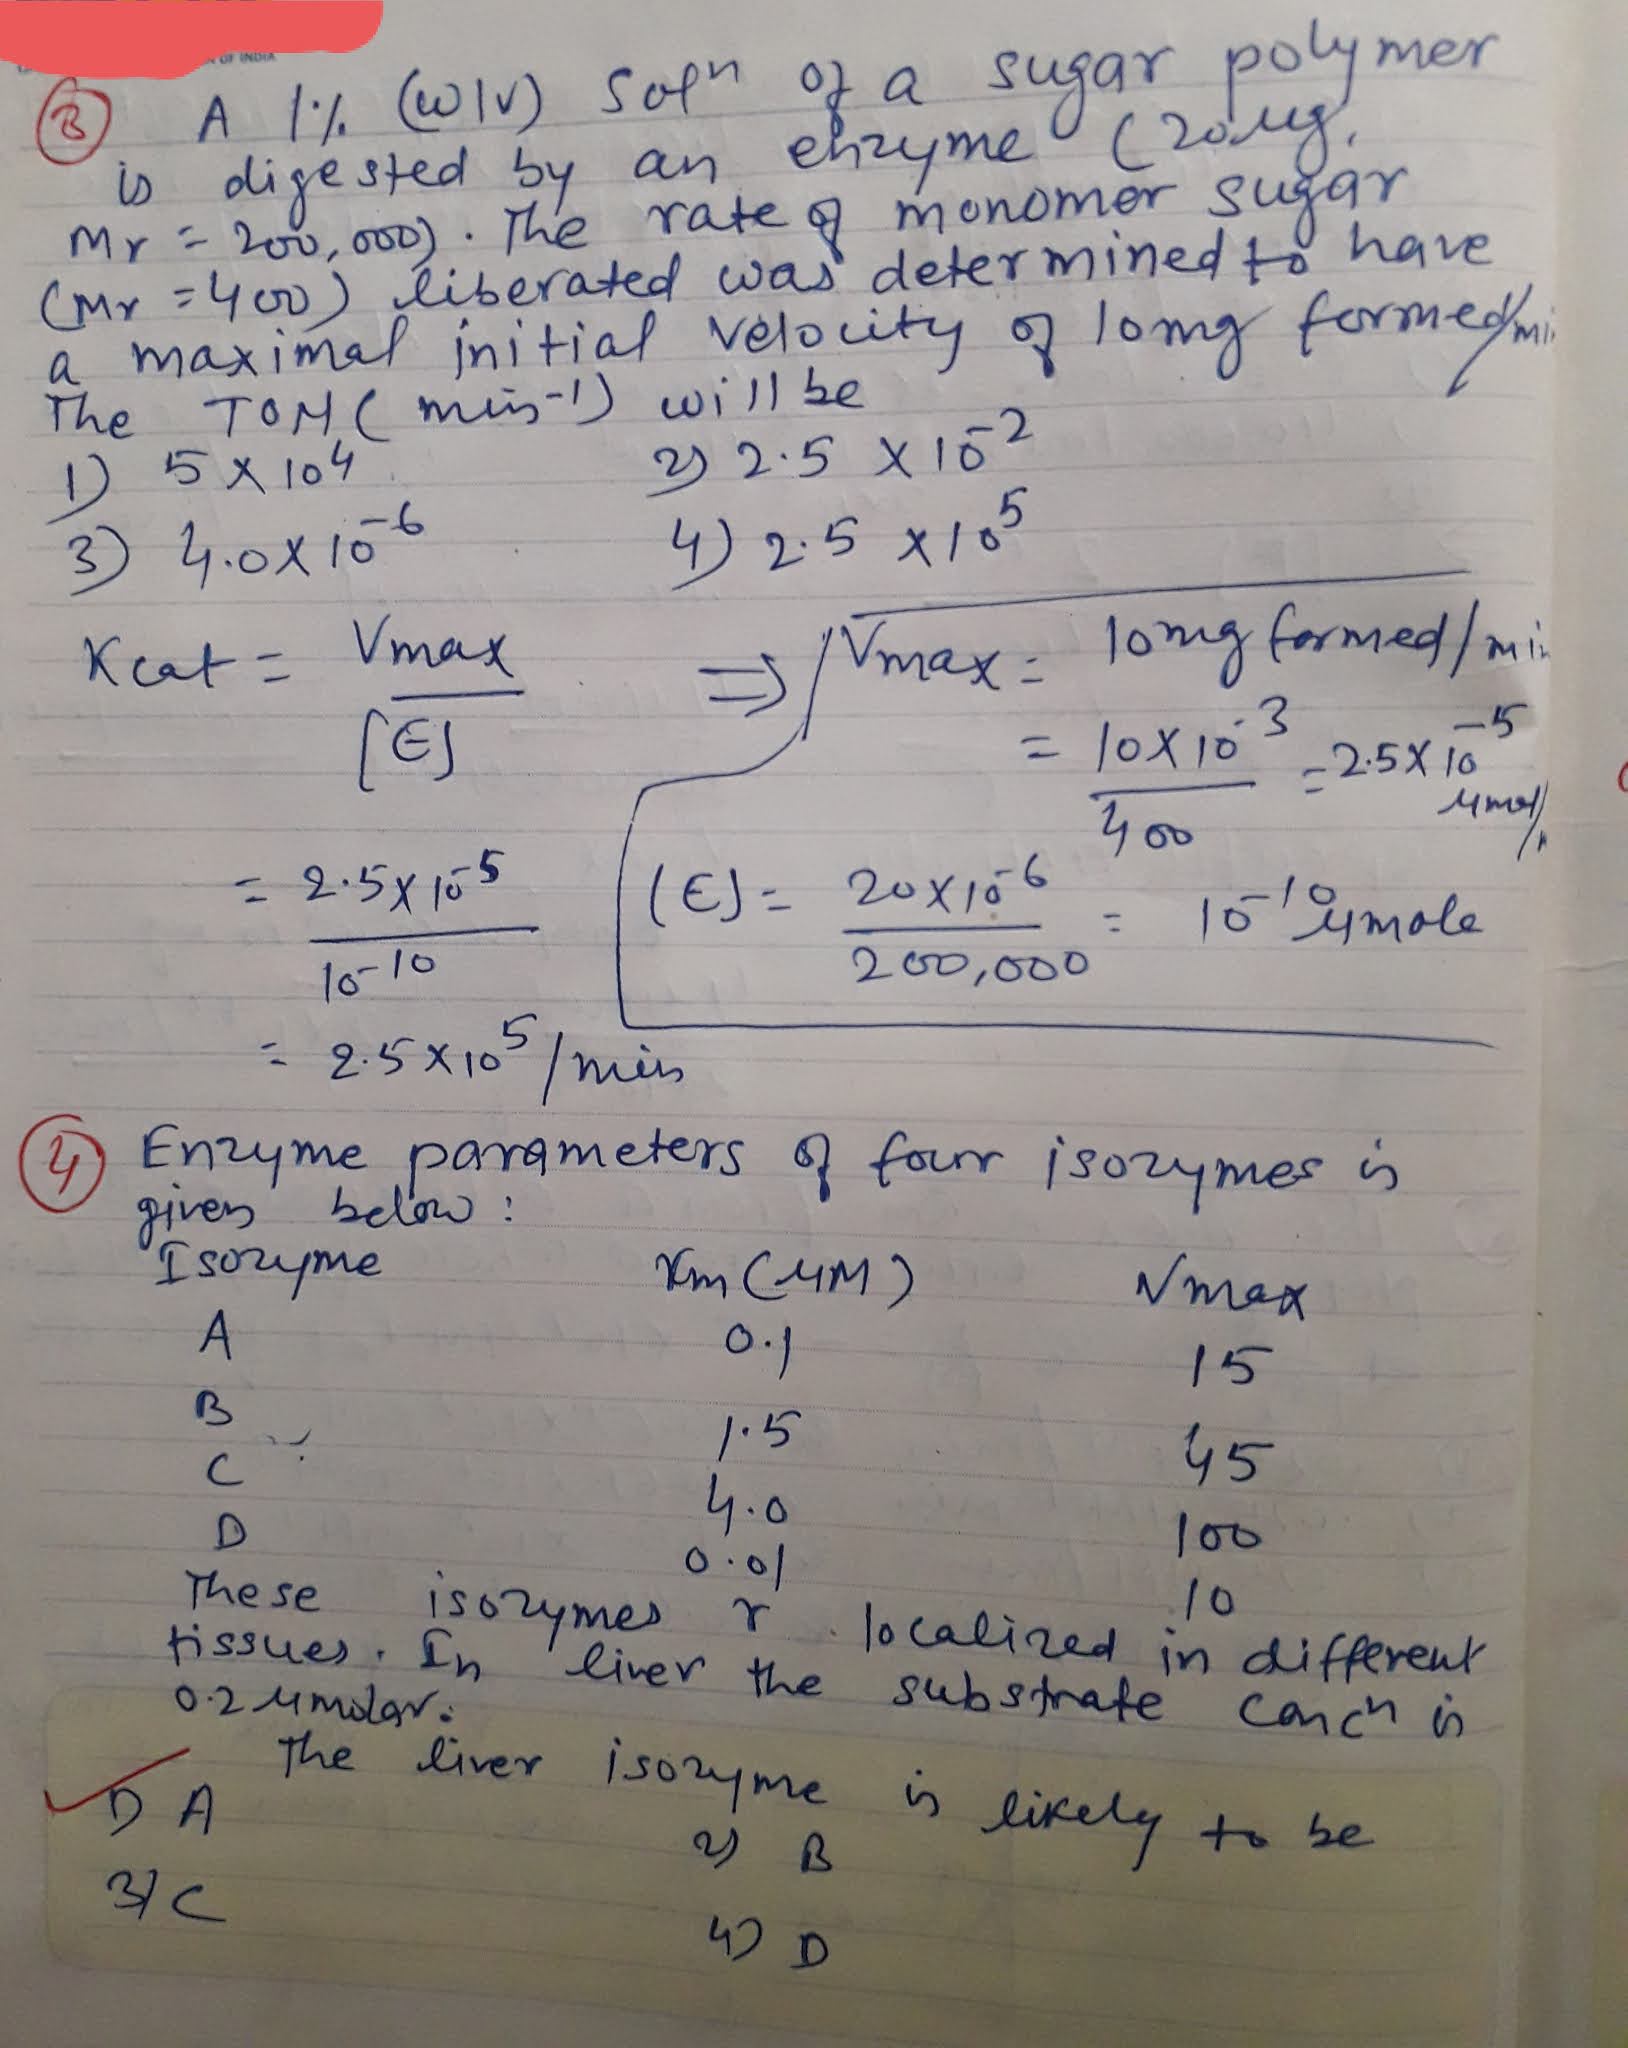 OF INDIA
③ A 1% (w/v) Solⁿ of a sugar polymer
is digested by an enzyme (20 μg,
Mr = 200,000). The rate of monomer sugar
(Mr = 400) liberated was determined to have
a maximal initial velocity of 10mg formed/mi
The TON (min-1) will be
1) 5 x 10⁴ 2) 2.5 x 10⁻²
3) 4.0 x 10⁻⁶ 4) 2.5 x 10⁵
Kcat = Vmax / [E] ⇒ Vmax = 10mg formed/min
= 10 x 10⁻³ / 400 = 2.5 x 10⁻⁵ μmol/
= 2.5 x 10⁻⁵ / 10⁻¹⁰ [E] = 20 x 10⁻⁶ / 200,000 = 10⁻¹⁰ μmole
= 2.5 x 10⁵ / min
④ Enzyme parameters of four isozymes is
given below:
Isozyme Km (μM) Vmax
A 0.1 15
B 1.5 45
C 4.0 100
D 0.01 10
These isozymes r localized in different
tissues. In liver the substrate concⁿ is
0.2 μmolar.
The liver isozyme is likely to be
1) A 2) B
3) C 4) D